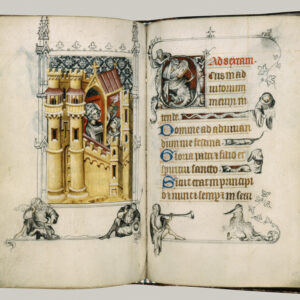 Ad sextam
Deus in ad
iutorium
meum in
tende.
Domine ad adiuuan
dum me festina
Gloria patri filio et
spiritui sancto
Sicut erat in principi
o et nunc et semper et in secu